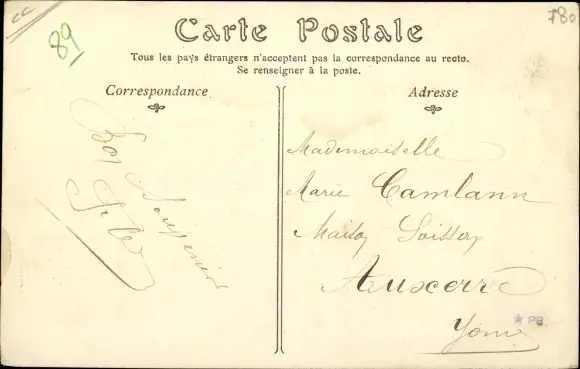 cc
89
780
Carte Postale
Tous les pays étrangers n'acceptent pas la correspondance au recto.
Se renseigner à la poste.
Correspondance
Bon Souvenir
Adresse
Mademoiselle
Marie Camlann
Maison Soisson
Auxerre
Yonne
PB